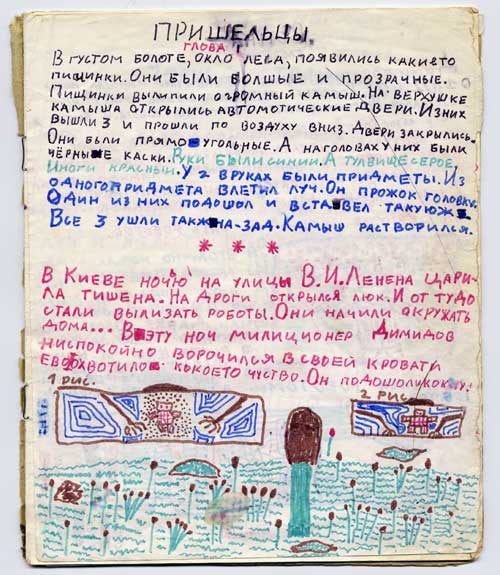 ПРИШЕЛЬЦЫ.
ГЛОВА 1
В ГУСТОМ БОЛОГЕ, ОКЛО ЛЕСА, ПОЯВИЛИСЬ КАКИЕТО
ПИЩИНКИ. ОНИ БЫЛИ БОЛШЫЕ И ПРОЗРАЧНЫЕ.
ПИЩИНКИ ВЫЛИПИЛИ ОГРОМНЫЙ КАМЫШ. НА ВЕРХУШКЕ
КАМЫША ОТКРЫЛИСЬ АВТОМОТИЧЕСКИЕ ДВЕРИ. ИЗ НИХ
ВЫШЛИ 3 И ПРОШЛИ ПО ВОЗДУХУ ВНИЗ. ДВЕРИ ЗАКРЫЛИСЬ.
ОНИ БЫЛИ ПРЯМОУГОЛЬНЫЕ. А НА ГОЛОВАХ У НИХ БЫЛИ
ЧЁРНЫЕ КАСКИ. РУКИ БЫЛИ СИНИИ. А ТУЛВИЩЕ СЕРОЕ,
ИНОГИ КРАСНЫИ. У 2 ВРУКАХ БЫЛИ ПРИДМЕТЫ. ИЗ
ОДНОГО ПРИДМЕТА ВЛЕТИЛ ЛУЧ. ОН ПРОЖОК ГОЛОВКУ.
ОДИН ИЗ НИХ ПОДОШОЛ И ВСТАВЕЛ ТАКУЮЖ
ВСЕ 3 УШЛИ ТАКЖ НА-ЗАД. КАМЫШ РАСТВОРИЛСЯ.
* * *
В КИЕВЕ НОЧЬЮ НА УЛИЦЫ В.И. ЛЕНЕНА ЦАРИ-
ЛА ТИШЕНА. НА ДРОГИ ОТКРЫЛСЯ ЛЮК. И ОТ ТУДО
СТАЛИ ВЫЛИЗАТЬ РОБОТЫ. ОНИ НАЧИЛИ ОКРУЖАТЬ
ДОМА... В ЭТУ НОЧ МИЛИЦИОНЕР ДИМИДОВ
НИСПОКОЙНО ВОРОЧИЛСЯ В СВОЕЙ КРОВАТИ
ЕВО ХВОТИЛО КОКОЕТО ЧУСТВО. ОН ПОДОШОЛ
1 РИС.
2 РИС.